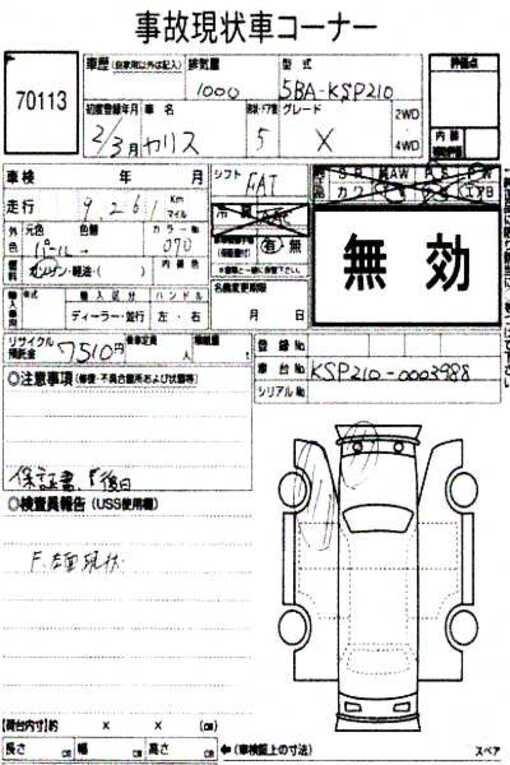 事故現状車コーナー
70113
車歴 (自家用以外は記入) 排気量 型式 評価点
1000 5BA-KSP210
初度登録年月 車名 グレード 2WD
2/3月 ヤリス 5 X 4WD
内装
車検 年 月 シフト FAT
走行 9,261 Km マイル
外色 元色 色替 カラーNo
パール → 070
有 無
燃料 ガソリン・軽油・( ) 内装色
無効
名義変更期限
輸入車両 年式 輸入区分 ハンドル
ディーラー・並行 左・右 月 日
リサイクル預託金 7510円 乗車定員 人 積載量 t
登録No
車台No KSP210-0003988
シリアルNo
◎注意事項 (修復・不具合箇所および状態等)
保証書、後日
◎検査員報告 (USS使用欄)
F.左面現状
【荷台内寸】約 × × (cm)
長さ cm 幅 cm 高さ cm ←(車検証上の寸法) スペア